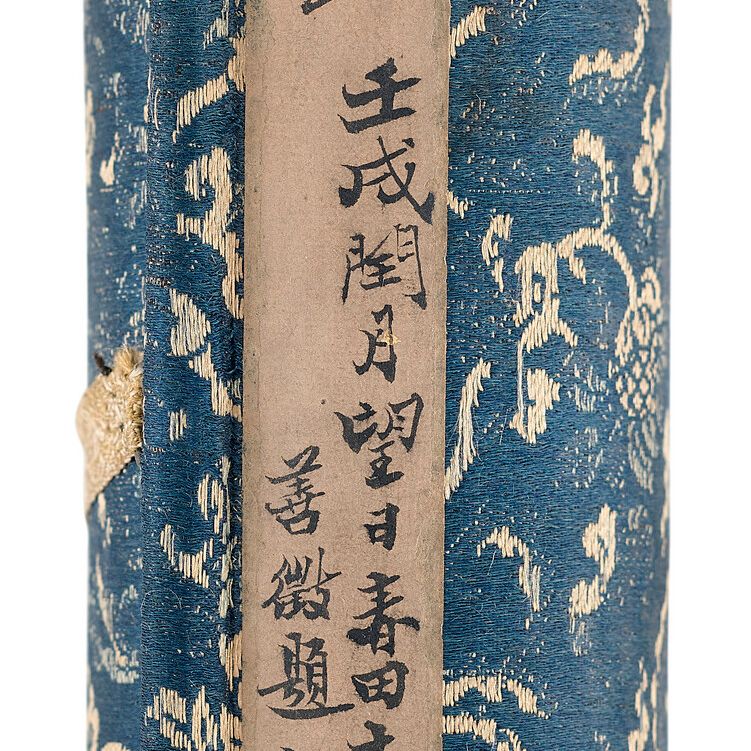 壬戌閏月望日春田
善徵題